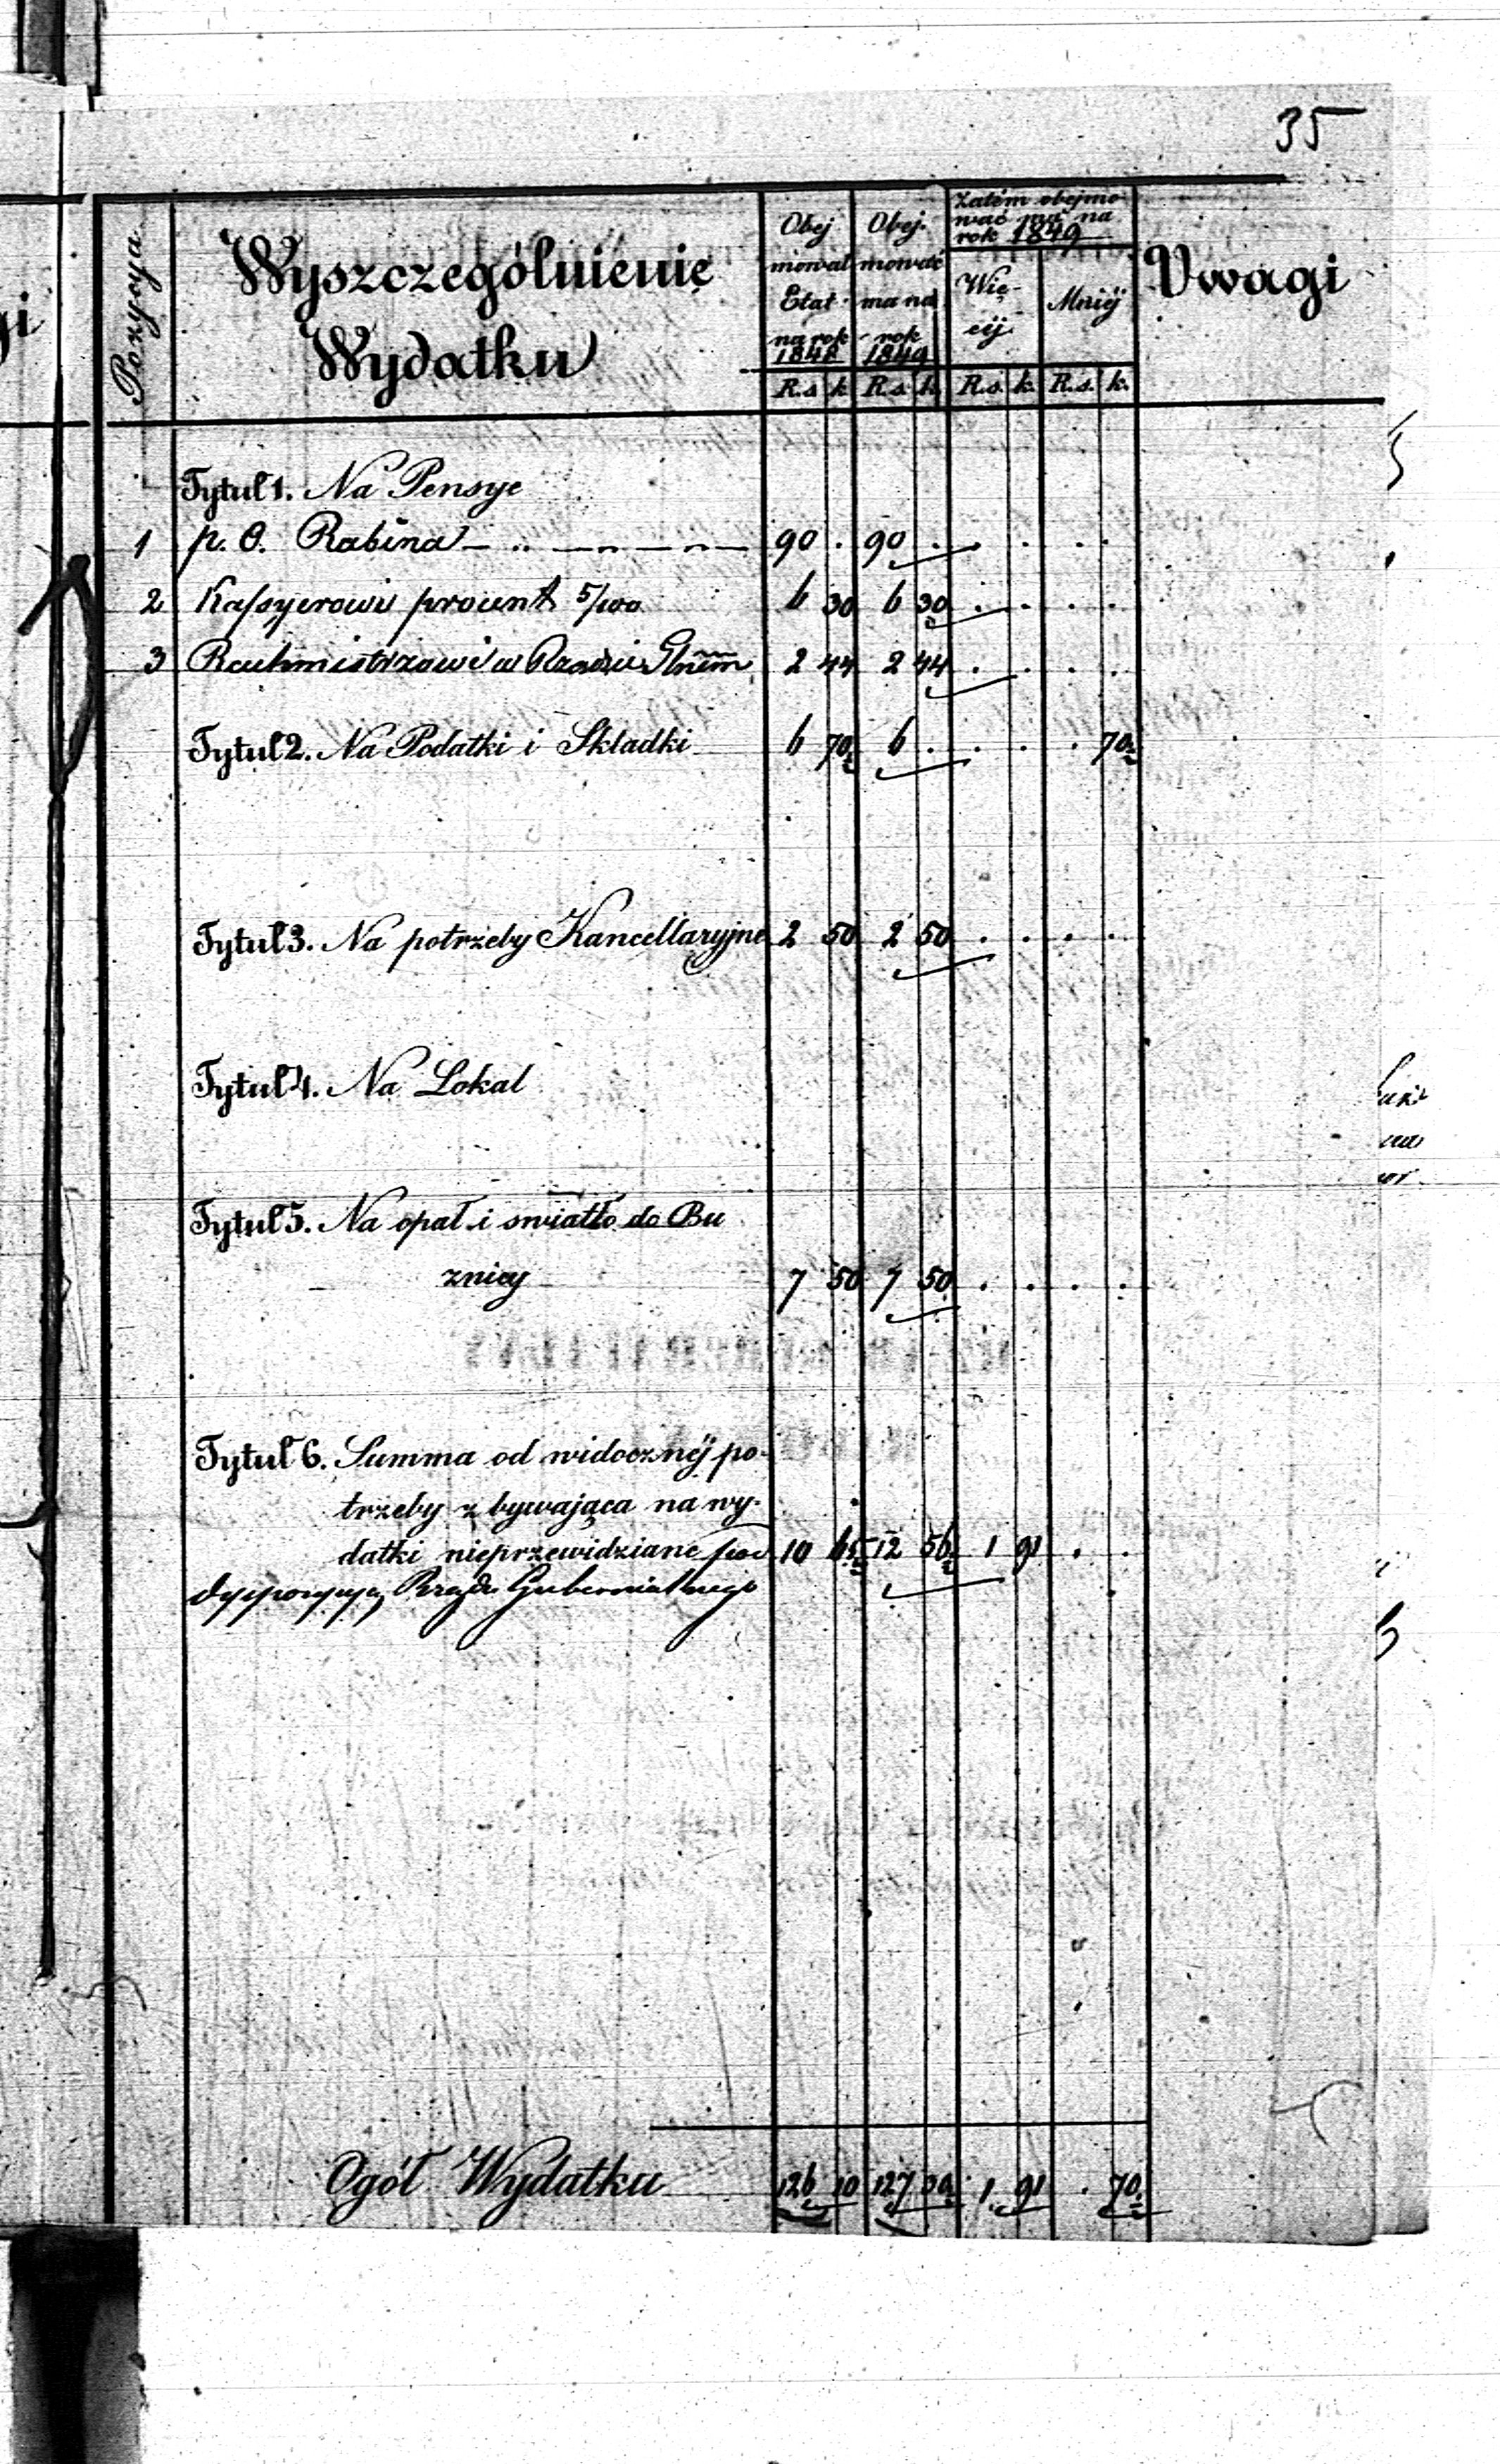 35
Pozycya
Wyszczególnienie
Wydatku
Obej
mował
Etat
na rok
1848
Obej-
mować
ma na
rok
1849
Zatém obejmo
wać ma na
rok 1849
Wię-
céj
Mniéj
Uwagi
R.s. k. R.s. k. R.s. k. R.s. k.
Tytuł 1. Na Pensye
1 p. O. Rabina — „ — „ — „ — 90 . 90 . . . . .
2 Kassyerowi procent 5/100 6 30 6 30 . . . .
3 Rachmistrzowi w Rządzie Glném 2 44 2 44 . . . .
Tytuł 2. Na Podatki i Składki 6 70½ 6 . . . . 70½
Tytuł 3. Na potrzeby Kancellaryjne 2 50 2 50 . . . .
Tytuł 4. Na Lokal
Tytuł 5. Na opał i swiatło do Bu
znicy 7 50 7 50 . . . .
Tytuł 6. Summa od widocznéj po-
trzeby zbywająca na wy-
datki nieprzewidziane pod 10 65½ 12 56½ 1 91 . .
dyspozycyą Rządu Gubernialnego
Ogół Wydatku 126 10 127 30½ 1 91 . 70½